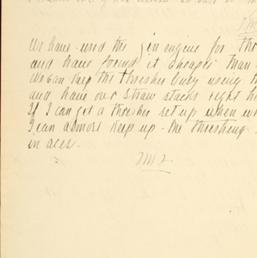 We have used the gin engine for thr
and have found it cheaper than
We can keep the thresher busy using t
and have our straw stacks right h
If I can get a thresher set up when w
I can almost keep up the threshing
in aces.